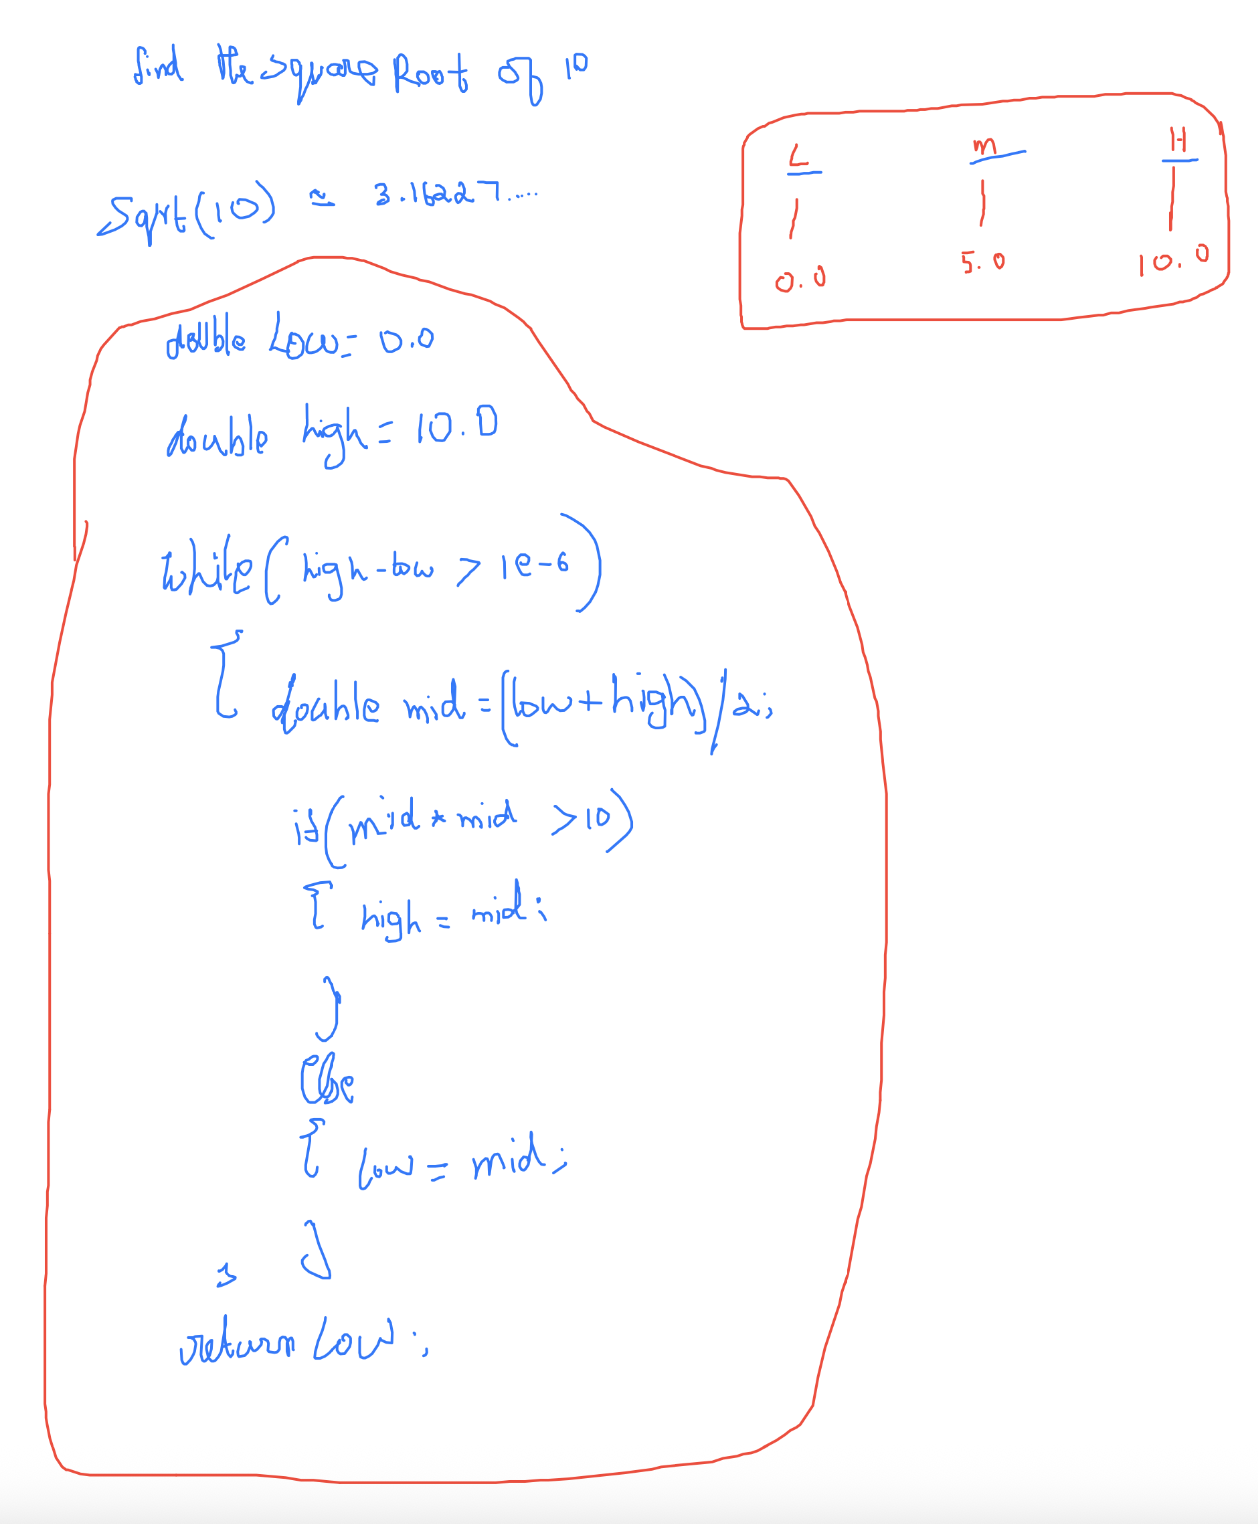 find the square Root of 10
Sqrt(10) ≈ 3.16227.....
L m H
0.0 5.0 10.0
double Low = 0.0
double high = 10.0
while( high-low > 1e-6)
{
double mid = (low+high)/2;
if(mid * mid >10)
{ high = mid;
}
else
{ low = mid;
}
}
return Low;